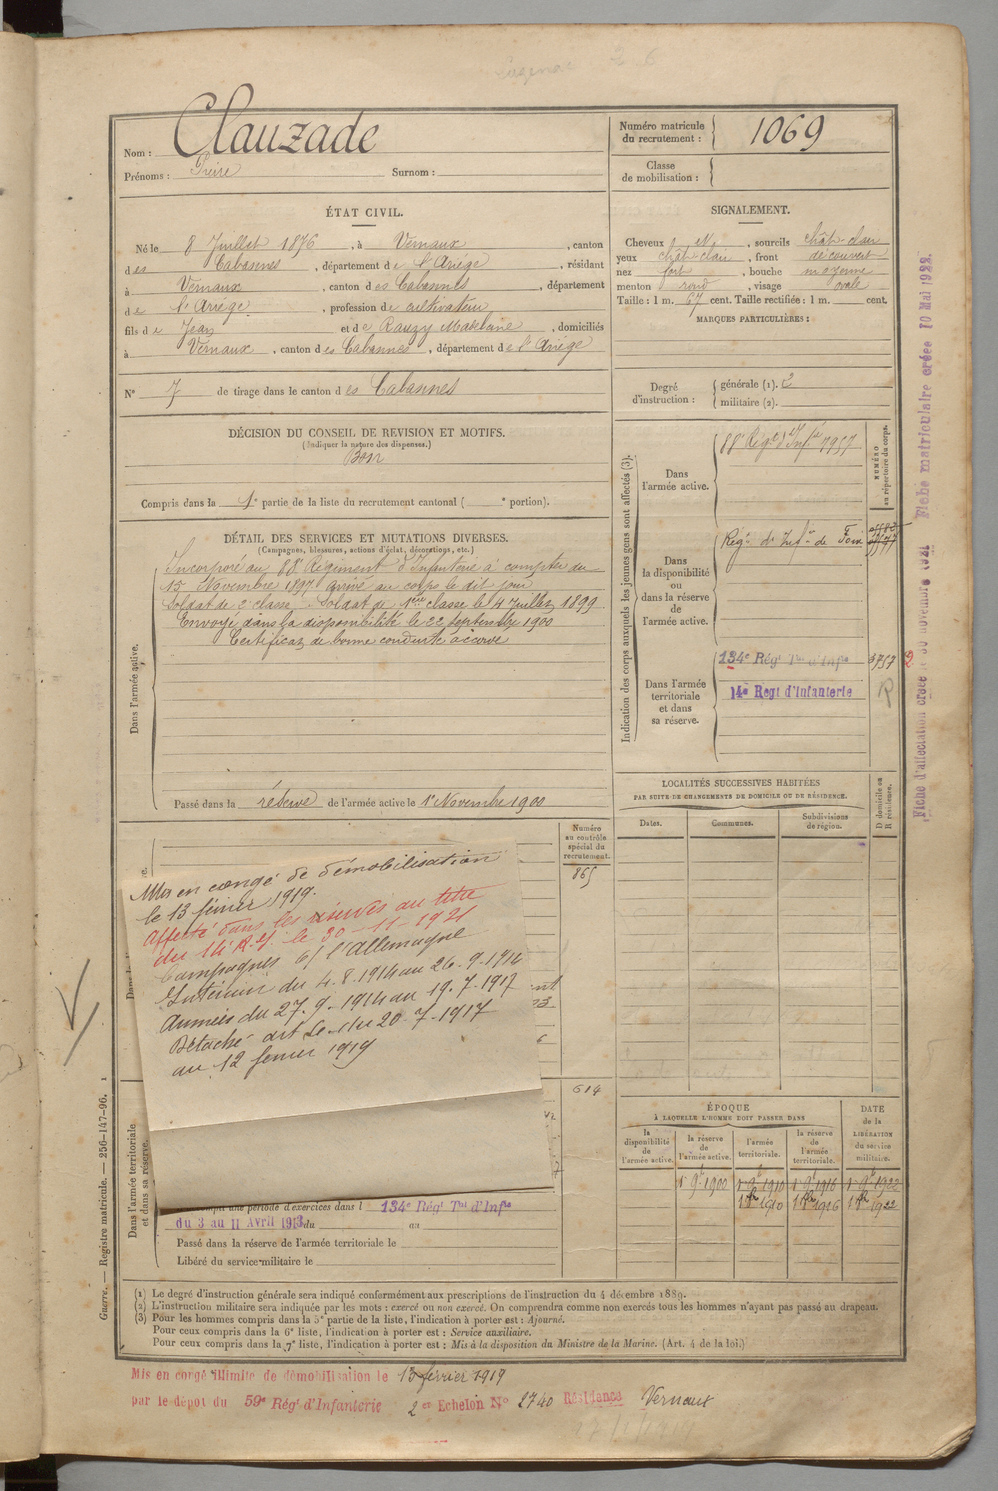 Nom : Clauzade
Prénoms : Pierre Surnom :
Numéro matricule du recrutement : 1069
Classe de mobilisation :
ÉTAT CIVIL.
Né le 8 Juillet 1876, à Vernaux, canton
des Cabannes, département de l'Ariège, résidant
à Vernaux, canton des Cabannes, département
de l'Ariège, profession de cultivateur
fils de Jean et de Rauzy Madelaine, domiciliés
à Vernaux, canton des Cabannes, département de l'Ariège
N° 7 de tirage dans le canton des Cabannes
SIGNALEMENT.
Cheveux N, sourcils chât clair
yeux chât clair, front découvert
nez fort, bouche moyenne
menton rond, visage ovale
Taille : 1 m. 67 cent. Taille rectifiée : 1 m. cent.
MARQUES PARTICULIÈRES :
Degré d'instruction : générale (1). 2
militaire (2).
DÉCISION DU CONSEIL DE REVISION ET MOTIFS.
(Indiquer la nature des dispenses.)
Bon
Compris dans la 1e partie de la liste du recrutement cantonal ( e portion).
DÉTAIL DES SERVICES ET MUTATIONS DIVERSES.
(Campagnes, blessures, actions d'éclat, décorations, etc.)
Dans l'armée active.
Incorporé au 88e Régiment d'Infanterie à compter du
15 Novembre 1897 arrivé au corps le dit jour
Soldat de 2e classe. Soldat de 1ère classe le 4 Juillet 1899
Envoyé dans la disponibilité le 22 septembre 1900
Certificat de bonne conduite accordé
Passé dans la réserve de l'armée active le 1er Novembre 1900
Indication des corps auxquels les jeunes gens sont affectés (3).
NUMÉRO au répertoire du corps.
Dans l'armée active.
88e Rég.t d'Inf.ie 7957
Dans la disponibilité ou dans la réserve de l'armée active.
Rég.t d'Inf.ie de Foix
Dans l'armée territoriale et dans sa réserve.
134e Régt Tal d'Infie 3757
14e Regt d'Infanterie
R
LOCALITÉS SUCCESSIVES HABITÉES
PAR SUITE DE CHANGEMENTS DE DOMICILE OU DE RÉSIDENCE.
Dates. Communes. Subdivisions de région.
D domicile ou R résidence.
Numéro au contrôle spécial du recrutement.
865
614
Mis en congé de démobilisation
le 13 février 1919.
Affecté dans les réserves au titre
du 14e R.I. le 30-11-1921
Campagnes c/ l'Allemagne
Intérieur du 4.8.1914 au 26.9.1914
Armées du 27.9.1914 au 19.7.1917
Détaché art. du 20.7.1917
au 12 fevrier 1919
Dans l'armée territoriale et dans sa réserve.
une période d'exercices dans l 134e Régt Tal d'Infie
du 3 au 11 Avril 1913 du au
Passé dans la réserve de l'armée territoriale le
Libéré du service militaire le
ÉPOQUE
À LAQUELLE L'HOMME DOIT PASSER DANS
la disponibilité de l'armée active.
la réserve de l'armée active.
l'armée territoriale.
la réserve de l'armée territoriale.
DATE de la LIBÉRATION du service militaire.
1er 9bre 1900 1er 9bre 1910 1er 9bre 1916 1er 9bre 1922
1er 8bre 1910 1er 8bre 1916 1er 8bre 1922
(1) Le degré d'instruction générale sera indiqué conformément aux prescriptions de l'instruction du 4 décembre 1889.
(2) L'instruction militaire sera indiquée par les mots : exercé ou non exercé. On comprendra comme non exercés tous les hommes n'ayant pas passé au drapeau.
(3) Pour les hommes compris dans la 5e partie de la liste, l'indication à porter est : Ajourné.
Pour ceux compris dans la 6e liste, l'indication à porter est : Service auxiliaire.
Pour ceux compris dans la 7e liste, l'indication à porter est : Mis à la disposition du Ministre de la Marine. (Art. 4 de la loi.)
Mis en congé illimité de démobilisation le 13 février 1919
par le dépôt du 59e Régt d'Infanterie 2er Echelon N° 2740 Résidence Vernaux
Guerre. — Registre matricule. — 256-147-96.
Fiche d'affectation créée le 30 novembre 1921 Fiche matriculaire créée 10 Mai 1922.